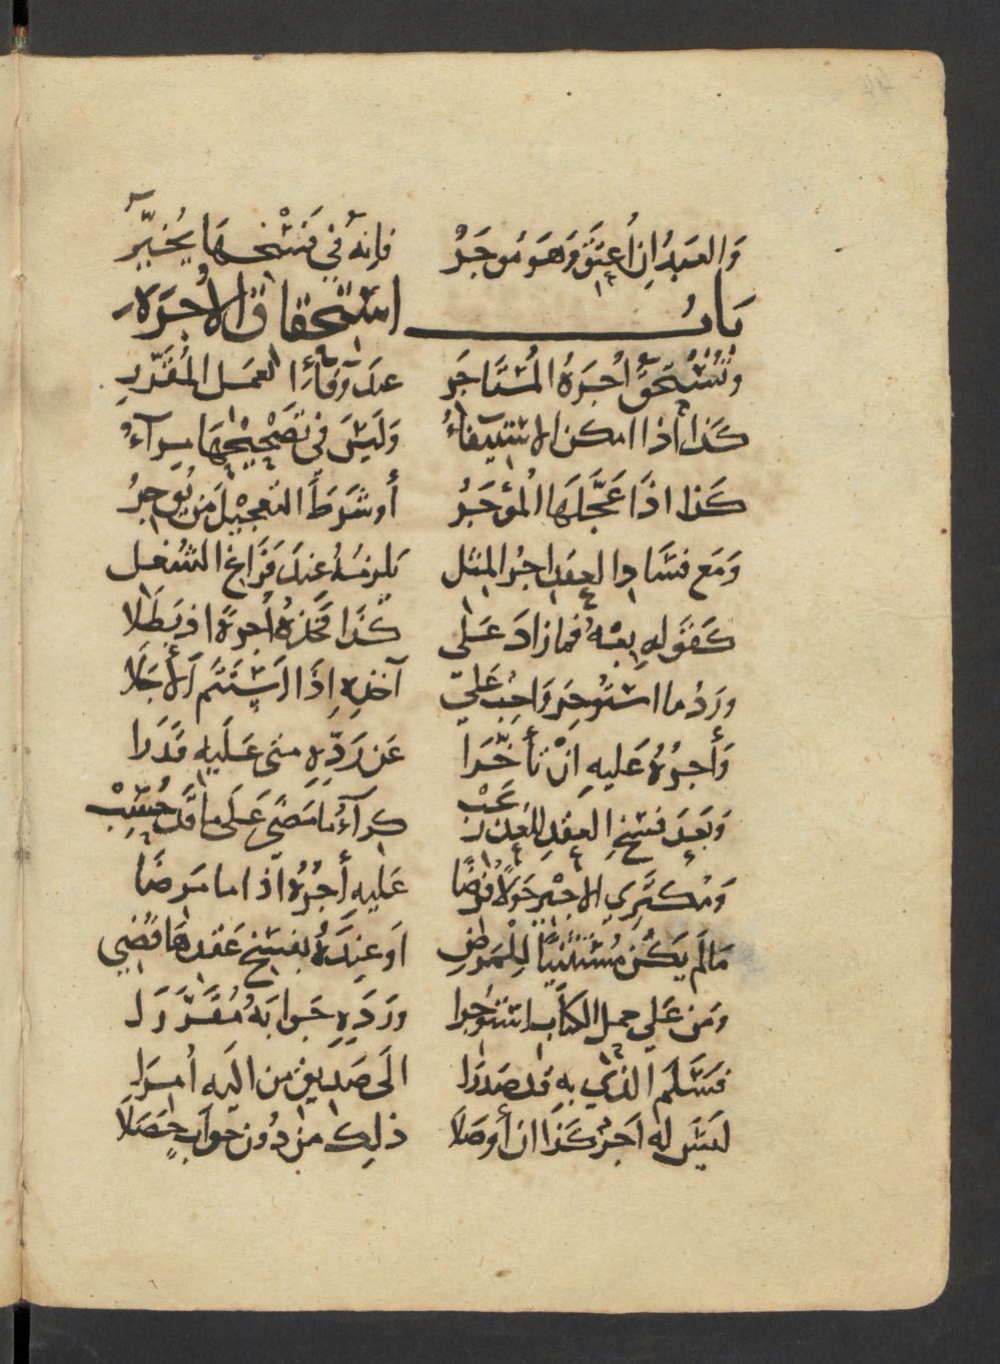 وَالعَبدُ اِن أُعتِقَ وَهَو مُوجَرُ فاِنهُ في فَسْخِهَا يُخَيَّرُ
بَابُ استحقاق الاُجرَة
وتُسْتَحَقُّ اُجرَةُ المُسْتَاجَرِ عندَ وَفَآءِ العمَل المُقَدَّرِ
كَذا اذا امكن الاستيفآءُ وَليسَ في تصْحِيْحِهَا مِرآءُ
كَذا اذَا عَجَّلَهَا المُؤجَرُ أو شَرَطَ التعجِيْلَ مَن يُوَجِرُ
وَمَع فسَادِ العقدِ اجرُ المثل يَلزمُهُ عِندَ فَرَاغ الشغل
كَقَولهِ بِعهُ فما زادَ عَلى كَذَا فخذهُ أجرةً اذ بَطَلا
وَرَدُ ما استُوجِرَ وَاجِبٌ عَلىَ آخذِهِ اِذَا استَتَم الأجَلَا
وَأجرُهُ عَليهِ اِنْ تأخَّرَا عَن رَدِّهِ متى عَلَيهِ قَدَرا
وَبَعدَ فسخِ العقدِ للعذر يَجبْ كِرآءُ مَا مَضَى عَلى مَا قَد حُسِبْ
وَمُكتَرِي الاجيْرِ حَولاً فُرِضَا عَليهِ أجرُهُ اذا ما مَرِضَا
مَا لَم يَكُن مُسْتَثنِياً لِلْمَرَضِ اَو عِندَهُ بفسْخِ عَقدِهَا قُضِي
وَمَن عَلي حمل الكتاب استُوجرا وَرَدِّهِ جَوابَهُ مُقَرَّرَا
فسَلَّمَ الذي بهِ قد صَدَرَا الَى صَديقٍ من اليهِ اُمِرَا
ليسَ لهُ اَجرٌ كذا ان أوصَلَا ذلِك من دُون جوَابٍ حَصَلَا